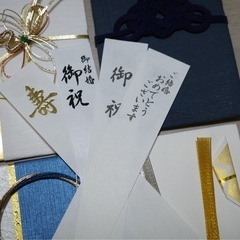 寿
御結婚
御祝
御祝
ご結婚
おめでとう
ございます